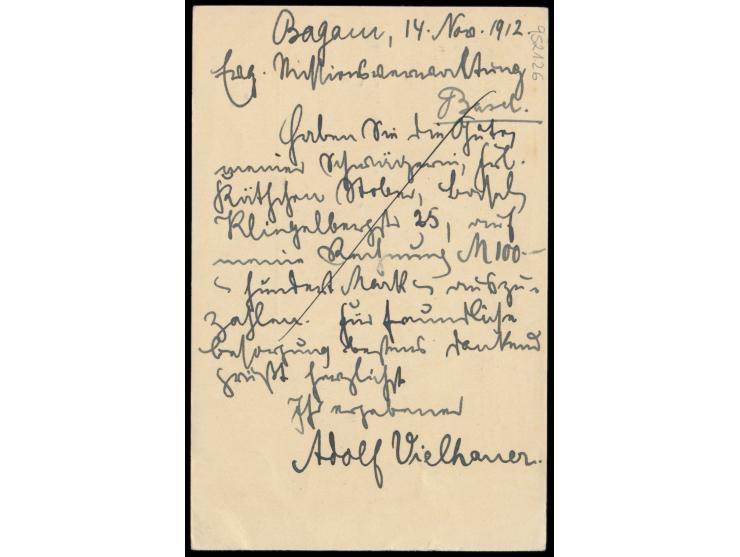 Bagam, 14. Nov. 1912.
952126
Evg. Missionsverwaltung
Basel.
Haben Sie die Güte,
meiner Schwägerin, Frl.
Käthchen Stober, Basel,
Klingelbergstr 25, auf
meine Rechnung M 100.—
- hundert Mark - auszu-
zahlen. Für freundliche
Besorgung bestens dankend
grüßt herzlichst
Ihr ergebener
Adolf Vielhauer.